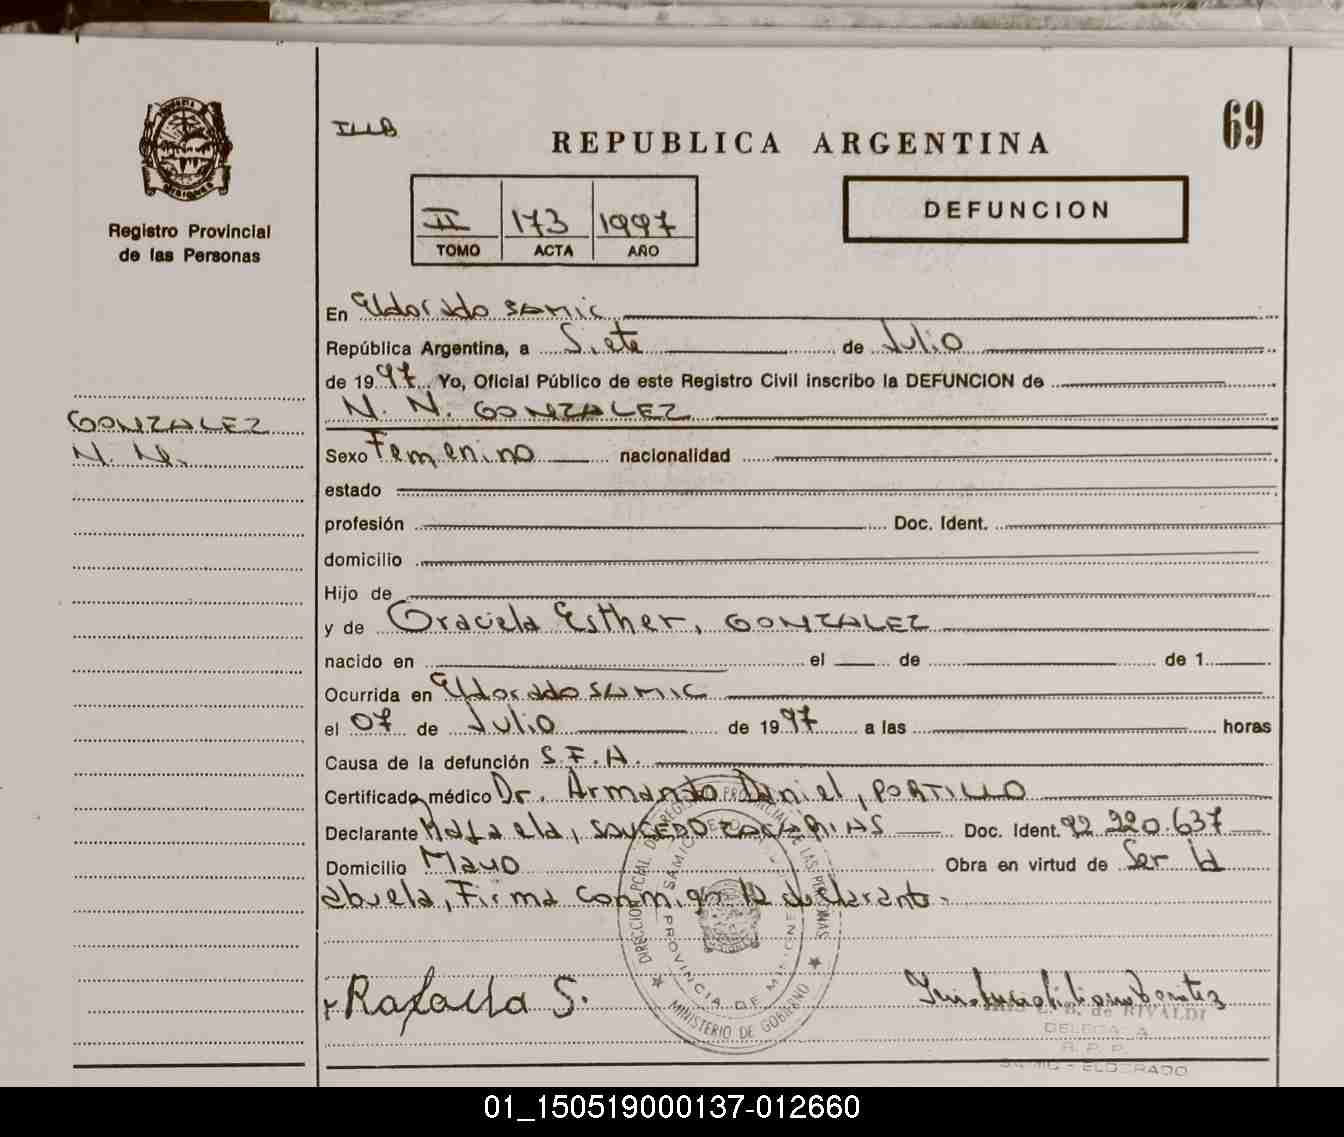 69
REPUBLICA ARGENTINA
Registro Provincial
de las Personas
II 173 1997
TOMO ACTA AÑO
DEFUNCION
GONZALEZ
N. N.
En Eldorado SAMIC
República Argentina, a Siete de Julio
de 1997 Yo, Oficial Público de este Registro Civil inscribo la DEFUNCION de
N. N. GONZALEZ
Sexo Femenino nacionalidad
estado
profesión Doc. Ident.
domicilio
Hijo de
y de Graciela Esther, GONZALEZ
nacido en el de de 1
Ocurrida en Eldorado SAMIC
el 07 de Julio de 1997 a las horas
Causa de la defunción S.F.A.
Certificado médico Dr. Armando Daniel, PORTILLO
Declarante Rafaela, SAUCEDO ZACARIAS Doc. Ident. 92.220.637
Domicilio Mayo Obra en virtud de Ser la
abuela, Firma conmigo la declarante.
Rafaela S.
B. de RIVALDI
DELEGADA
R. P. P.
SAMIC - ELDORADO
MINISTERIO DE GOBIERNO
PROVINCIA DE MISIONES
01_150519000137-012660